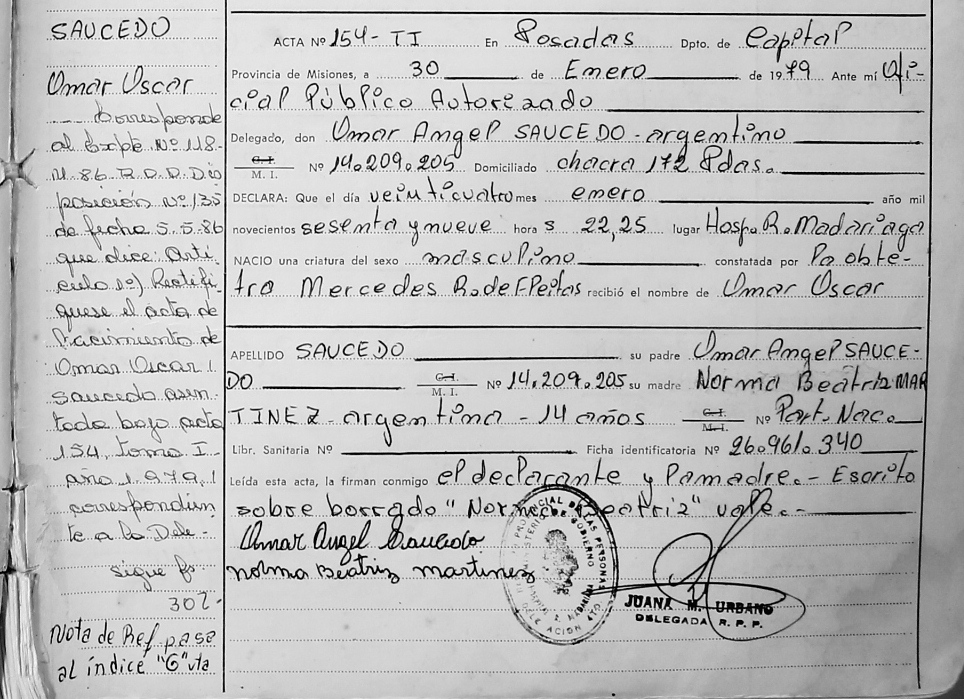 SAUCEDO
Omar Oscar
Corresponde
al Expte Nº 118-
U. 86 R.P.P. Dis
posición Nº 135
de fecha 5.5.86
que dice: Artí
culo 1º) Rectifi
quese el acta de
Nacimiento de
Omar Oscar
Saucedo asen
tada bajo acta
154, tomo I
año 1.979,
correspondien
te a la Dele-
sigue fs
302-
Nota de Ref pasa
al índice "G" vta
ACTA Nº 154- TI En Posadas Dpto. de Capital
Provincia de Misiones, a 30 de Enero de 1979 Ante mí Ofi-
cial Público Autorizado
Delegado, don Omar Angel SAUCEDO - argentino
C.I. M.I. Nº 14.209.205 Domiciliado chacra 172 Pdas.
DECLARA: Que el día veinticuatro mes enero año mil
novecientos sesenta y nueve hora s 22,25 lugar Hosp. R. Madariaga
NACIO una criatura del sexo masculino constatada por la obste-
tra Mercedes R. de Fleitas recibió el nombre de Omar Oscar
APELLIDO SAUCEDO su padre Omar Angel SAUCE-
DO C.I. M.I. Nº 14.209.205 su madre Norma Beatriz MAR
TINEZ - argentina - 14 años C.I. M.I. Nº Part. Nac.
Libr. Sanitaria Nº Ficha identificatoria Nº 26.961.340
Leída esta acta, la firman conmigo el declarante y la madre.- Escrito
sobre borrado "Norma Beatriz" vale.-
Omar Angel Saucedo
norma Beatriz martinez
JUANA M. URBANO
DELEGADA R. P. P.